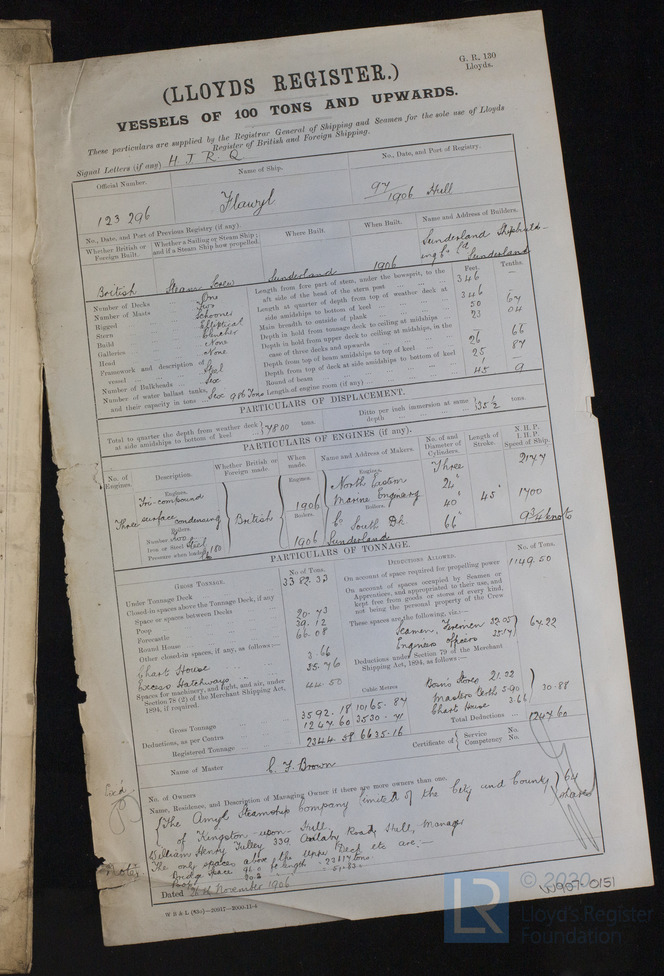 G. R., 130
Lloyds.
(LLOYDS REGISTER.)
VESSELS OF 100 TONS AND UPWARDS.
These particulars are supplied by the Registrar General of Shipping and Seamen for the sole use of Lloyds
Register of British and Foreign Shipping.
Signal Letters (if any) H J R Q
Official Number. Name of Ship. No., Date, and Port of Registry.
123 296 Flawyl 97/1906 Hull
No., Date, and Port of Previous Registry (if any).
Whether British or Foreign Built. Whether a Sailing or Steam Ship; and if a Steam Ship how propelled. Where Built. When Built. Name and Address of Builders.
British Steam Screw Sunderland 1906 Sunderland Shipbuilding Co Ld Sunderland
Feet. Tenths.
Number of Decks One
Number of Masts Two
Rigged Schooner
Stern Elliptical
Build Clencher
Galleries None
Head None
Framework and description of vessel Steel
Number of Bulkheads Six
Number of water ballast tanks, and their capacity in tons Six 986 Tons
Length from fore part of stem, under the bowsprit, to the aft side of the head of the stern post 346 —
Length at quarter of depth from top of weather deck at side amidships to bottom of keel 346 —
Main breadth to outside of plank 50 67
Depth in hold from tonnage deck to ceiling at midships 23 04
Depth in hold from upper deck to ceiling at midships, in the case of three decks and upwards
Depth from top of beam amidships to top of keel 26 66
Depth from top of deck at side amidships to bottom of keel 25 87
Round of beam 1
Length of engine room (if any) 45 9
PARTICULARS OF DISPLACEMENT.
Total to quarter the depth from weather deck at side amidships to bottom of keel 7800 tons. Ditto per inch immersion at same depth 35½ tons.
PARTICULARS OF ENGINES (if any).
No. of Engines. Description. Whether British or Foreign made. When made. Name and Address of Makers. No. of and Diameter of Cylinders. Length of Stroke. N. H. P. I. H. P. Speed of Ship.
Engines. Engines. Engines.
Three Tri-compound surface condensing
British 1906
North Eastern Marine Engineering Co South Dk Sunderland
Three 24" 40" 66" 45"
1700
9¾ knots
Boilers. Boilers. Boilers.
Number
Iron or Steel Steel
Pressure when loaded 180
1906
PARTICULARS OF TONNAGE.
GROSS TONNAGE. No. of Tons.
Under Tonnage Deck 3382.33
Closed-in spaces above the Tonnage Deck, if any
Space or spaces between Decks
Poop 20.73
Forecastle 39.12
Round House 66.08
Other closed-in spaces, if any, as follows:—
Chart House 3.66
Excess Hatchways 35.76
Spaces for machinery, and light, and air, under Section 78 (2) of the Merchant Shipping Act, 1894, if required. 44.50
Cubic Metres
Gross Tonnage 3592.18 10165.87
Deductions, as per Contra 1247.60 3530.71
Registered Tonnage 2344.58 6635.16
DEDUCTIONS ALLOWED. No. of Tons.
On account of space required for propelling power 1149.50
On account of spaces occupied by Seamen or Apprentices, and appropriated to their use, and kept free from goods or stores of every kind, not being the personal property of the Crew
These spaces are the following, viz.:—
Seamen, Firemen 32.05
Engineers officers 35.17
67.22
Deductions under Section 79 of the Merchant Shipping Act, 1894, as follows:—
Bosn's Stores 21.32
Masters berth 5.90
Chart House 3.66
30.88
Total Deductions 1247.60
Certificate of Service No. Competency No.
Name of Master C. F. Brown
No. of Owners
Name, Residence, and Description of Managing Owner if there are more owners than one.
The Amyl Steamship Company Limited of the City and County 64 shares
of Kingston-upon-Hull
William Henry Tulley 339 Anlaby Road, Hull, Manager
Note: The only spaces above the Upper Deck etc are:—
Bridge space
Poop
Dated 26th November 1906
W B & L (83c)—20917—3000-11-4
W907-0151
LR © 2020
Lloyd's Register
Foundation